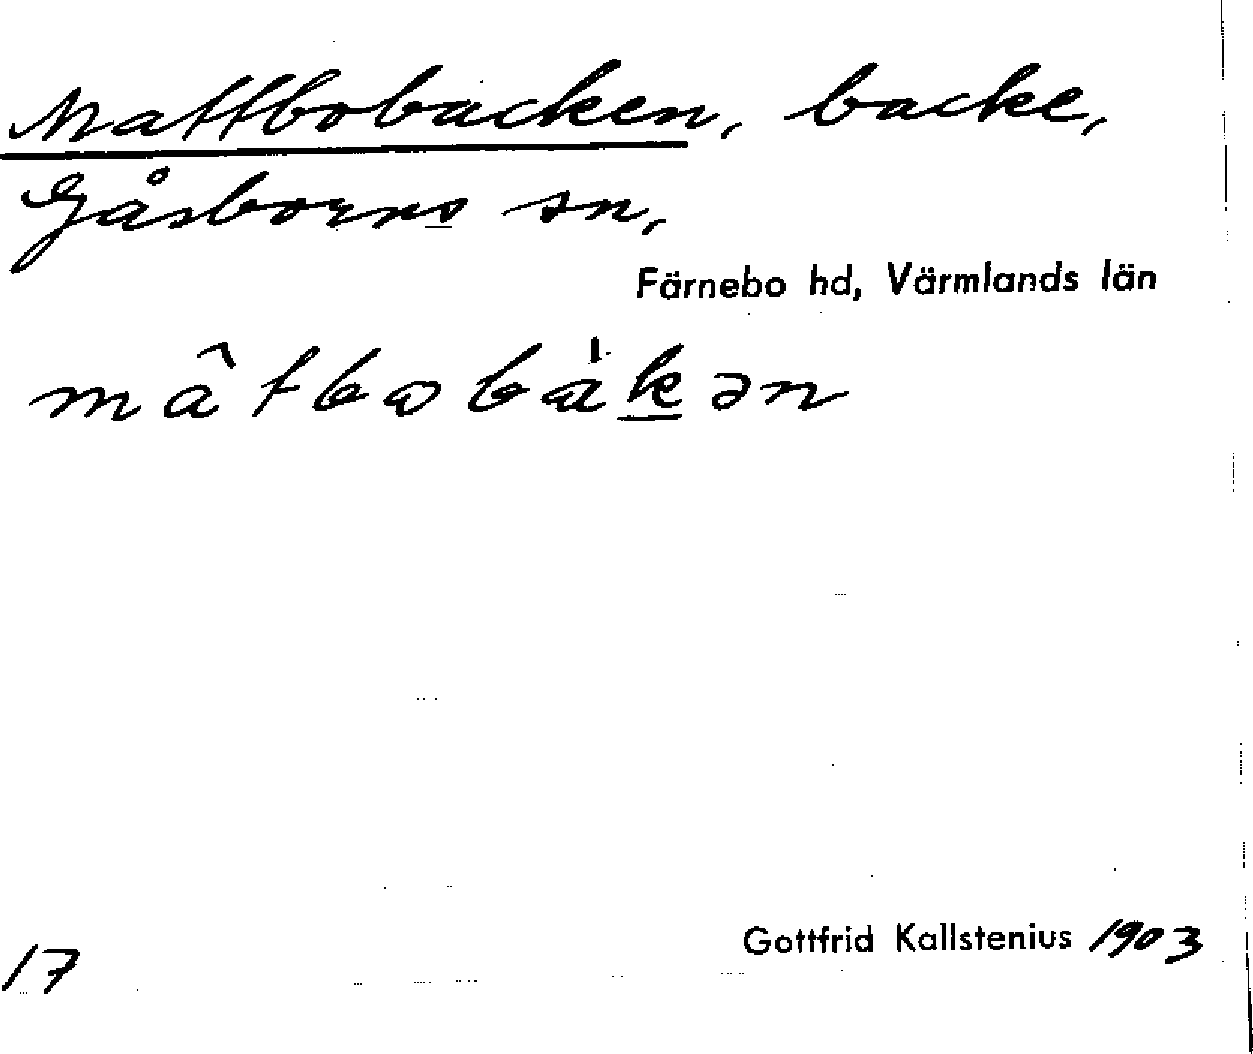 Mattbobacken, backe,
Gåsborns sn,
Färnebo hd, Värmlands län
mâtbobàkən
17
Gottfrid Kallstenius 1903